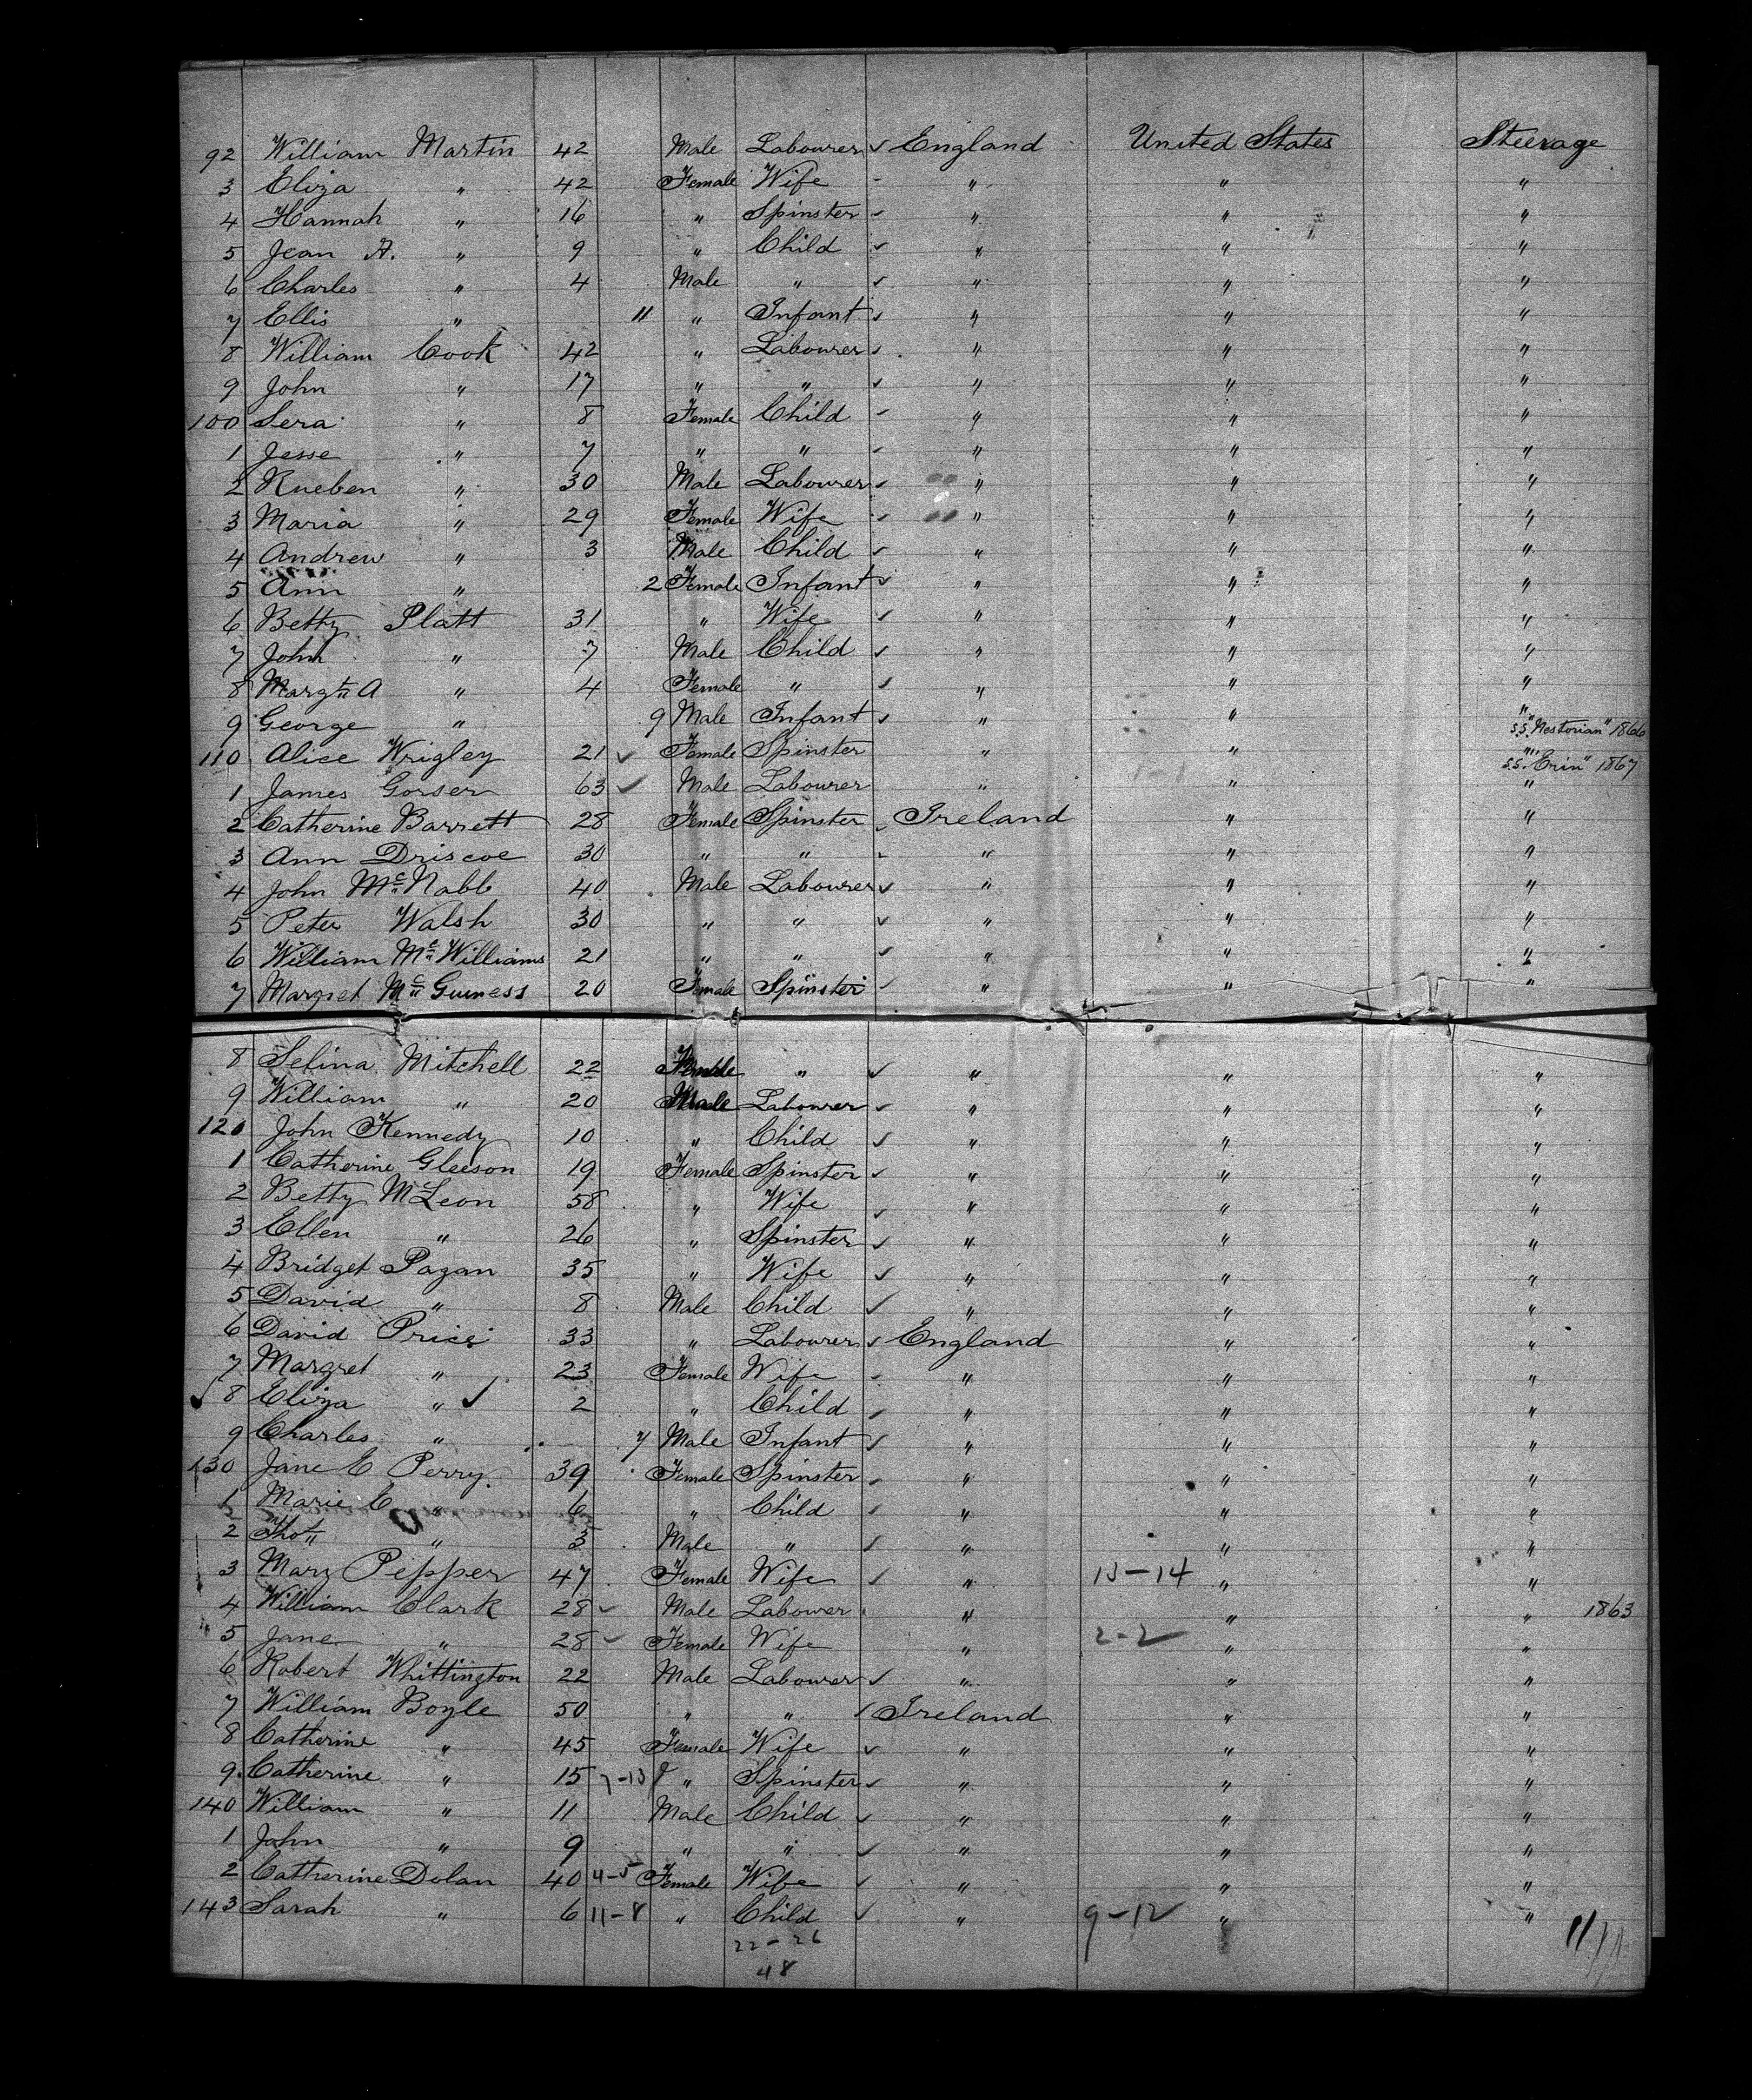 92 William Martin 42 Male Labourer ✓ England United States Steerage
3 Eliza " 42 Female Wife - " " "
4 Hannah " 16 " Spinster ✓ " " "
5 Jean A. " 9 " Child ✓ " " "
6 Charles " 4 Male " ✓ " " "
7 Ellis " 11 " Infant ✓ " " "
8 William Cook 42 " Labourer ✓ " " "
9 John " 17 " " ✓ " " "
100 Sera " 8 Female Child - " " "
1 Jesse " 7 " " ✓ " " "
2 Rueben " 30 Male Labourer ✓ " " "
3 Maria " 29 Female Wife ✓ " " "
4 Andrew " 3 Male Child ✓ " " "
5 Ann " 2 Female Infant ✓ " " "
6 Betty Platt 31 " Wife ✓ " " "
7 John " 7 Male Child ✓ " " "
8 Margt A " 4 Female " ✓ " " "
9 George " 9 Male Infant ✓ " " "
110 Alice Wrigley 21 ✓ Female Spinster " " " S.S. "Nestorian" 1866
1 James Gorser 63 ✓ Male Labourer " " " S.S. "Erin" 1867
2 Catherine Barrett 28 Female Spinster ✓ Ireland " "
3 Ann Driscoe 30 " " - " " "
4 John McNabb 40 Male Labourer ✓ " " "
5 Peter Walsh 30 " " ✓ " " "
6 William McWilliams 21 " " ✓ " " "
7 Margret McGuiness 20 Female Spinster ✓ " " "
8 Selina Mitchell 22 Female " ✓ " " "
9 William " 20 Male Labourer ✓ " " "
120 John Kennedy 10 " Child ✓ " " "
1 Catherine Gleeson 19 Female Spinster ✓ " " "
2 Betty McLeon 58 " Wife ✓ " " "
3 Ellen " 26 " Spinster ✓ " " "
4 Bridget Pagan 35 " Wife ✓ " " "
5 David " 8 Male Child ✓ " " "
6 David Price 33 " Labourer ✓ England " "
7 Margret " 23 Female Wife ✓ " " "
✓ 8 Eliza " ✓ 2 " Child ✓ " " "
9 Charles " 7 Male Infant ✓ " " "
130 Jane E Perry 39 Female Spinster ✓ " " "
1 Marie E " 6 " Child ✓ " " "
2 Thos " 3 Male " ✓ " " "
3 Mary Pepper 47 Female Wife ✓ " 13-14 " "
4 William Clark 28 ✓ Male Labourer " " " 1863
5 Jane " 28 ✓ Female Wife " 2-2 " "
6 Robert Whittington 22 Male Labourer ✓ " " "
7 William Boyle 50 " " ✓ Ireland " "
8 Catherine " 45 Female Wife ✓ " " "
9 Catherine " 15 7-13 " Spinster ✓ " " "
140 William " 11 Male Child ✓ " " "
1 John " 9 " " ✓ " " "
2 Catherine Dolan 40 4-5 Female Wife ✓ " " "
143 Sarah " 6 11-8 " Child ✓ " 9-12 " "
22-26
48